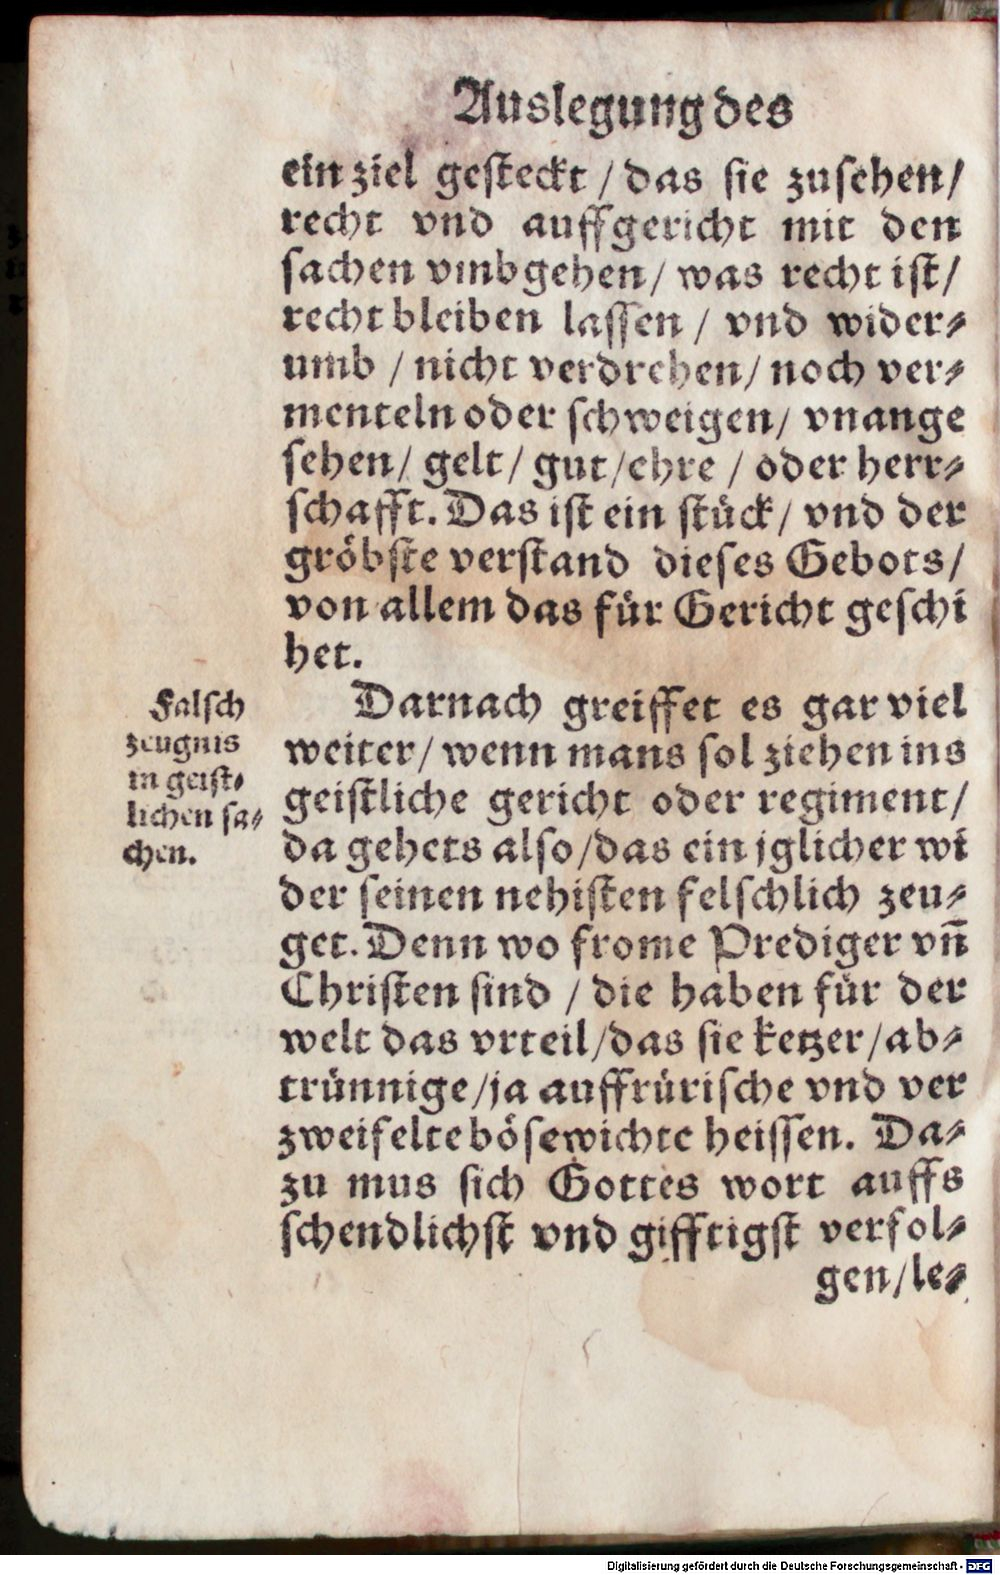 Auslegung des
ein ziel gesteckt / das sie zusehen/
recht vnd auffgericht mit den
sachen vmbgehen/ was recht ist/
recht bleiben lassen / vnd wider⸗
umb / nicht verdrehen/ noch ver⸗
menteln oder schweigen/ vnange
sehen/ gelt/ gut/ehre / oder herr⸗
schafft. Das ist ein stück/ vnd der
gröbste verstand dieses Gebots/
von allem das für Gericht geschi
het.
Falsch
zeugnis
in geist⸗
lichen sa⸗
chen.
Darnach greiffet es gar viel
weiter/ wenn mans sol ziehen ins
geistliche gericht oder regiment/
da gehets also/das ein jglicher wi
der seinen nehisten felschlich zeu⸗
get. Denn wo frome Prediger vn̄
Christen sind / die haben für der
welt das vrteil/das sie ketzer/ab⸗
trünnige/ja auffrürische vnd ver
zweifelte bösewichte heissen. Da⸗
zu mus sich Gottes wort auffs
schendlichst vnd gifftigst verfol⸗
gen/le⸗
Digitalisierung gefördert durch die Deutsche Forschungsgemeinschaft - DFG